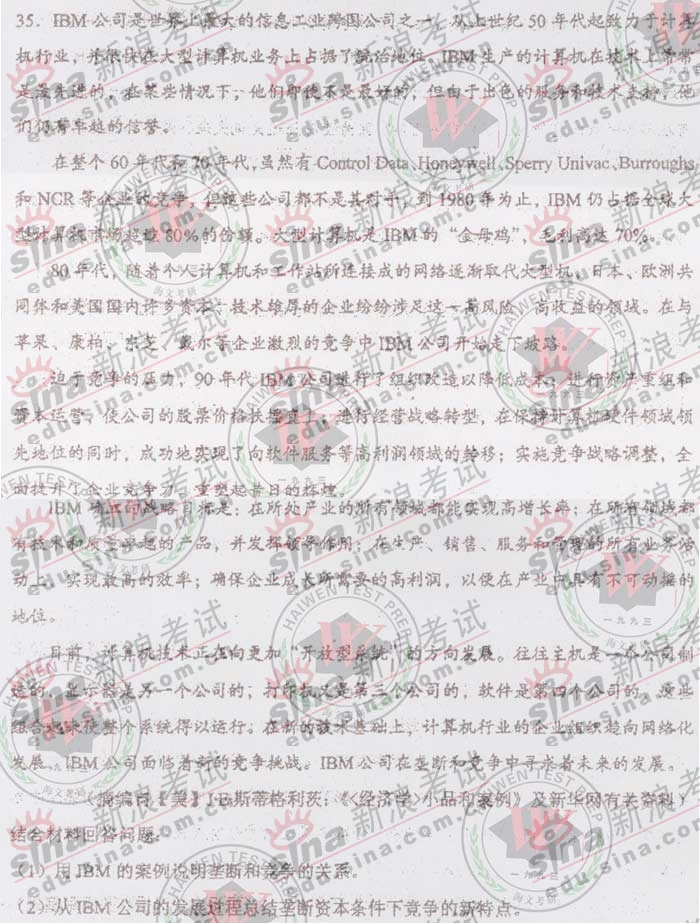 35. IBM公司是世界上最大的信息工业跨国公司之一，从上世纪50年代起致力于计算
机行业，并很快在大型计算机业务上占据了统治地位。IBM生产的计算机在技术上常常
是最先进的，在某些情况下，他们即使不是最好的，但由于出色的服务和技术支持，他
们仍有卓越的信誉。
在整个60年代和70年代，虽然有Control Data、Honeywell、Sperry Univac、Burroughs
和NCR等企业的竞争，但这些公司都不是其对手，到1980年为止，IBM仍占据全球大
型计算机市场超过80%的份额。大型计算机是IBM的“金母鸡”，毛利高达70%。
80年代，随着个人计算机和工作站所连接成的网络逐渐取代大型机，日本、欧洲共
同体和美国国内许多资本、技术雄厚的企业纷纷涉足这一高风险、高收益的领域。在与
苹果、康柏、东芝、戴尔等企业激烈的竞争中IBM公司开始走下坡路。
迫于竞争的压力，90年代IBM公司进行了组织改造以降低成本；进行资产重组和
资本运营，使公司的股票价格扶摇直上；进行经营战略转型，在保持计算机硬件领域领
先地位的同时，成功地实现了向软件服务等高利润领域的转移；实施竞争战略调整，全
面提升了企业竞争力，重塑起昔日的辉煌。
IBM确立的战略目标是：在所处产业的所有领域都能实现高增长率；在所有领域都
有技术和质量卓越的产品，并发挥领导作用；在生产、销售、服务和管理的所有业务活
动上，实现最高的效率；确保企业成长所需要的高利润，以便在产业中具有不可动摇的
地位。
目前，计算机技术正在向更加“开放型系统”的方向发展。往往主机是一个公司制
造的，显示器是另一个公司的，打印机又是第三个公司的，软件是第四个公司的，这些
组合起来使整个系统得以运行。在新的技术基础上，计算机行业的企业组织趋向网络化
发展，IBM公司面临着新的竞争挑战。IBM公司在垄断和竞争中寻求着未来的发展。
（摘编自【美】J·E·斯蒂格利茨：《〈经济学〉小品和案例》及新华网有关资料）
结合材料回答问题：
（1）用IBM的案例说明垄断和竞争的关系。
（2）从IBM公司的发展过程总结垄断资本条件下竞争的新特点。